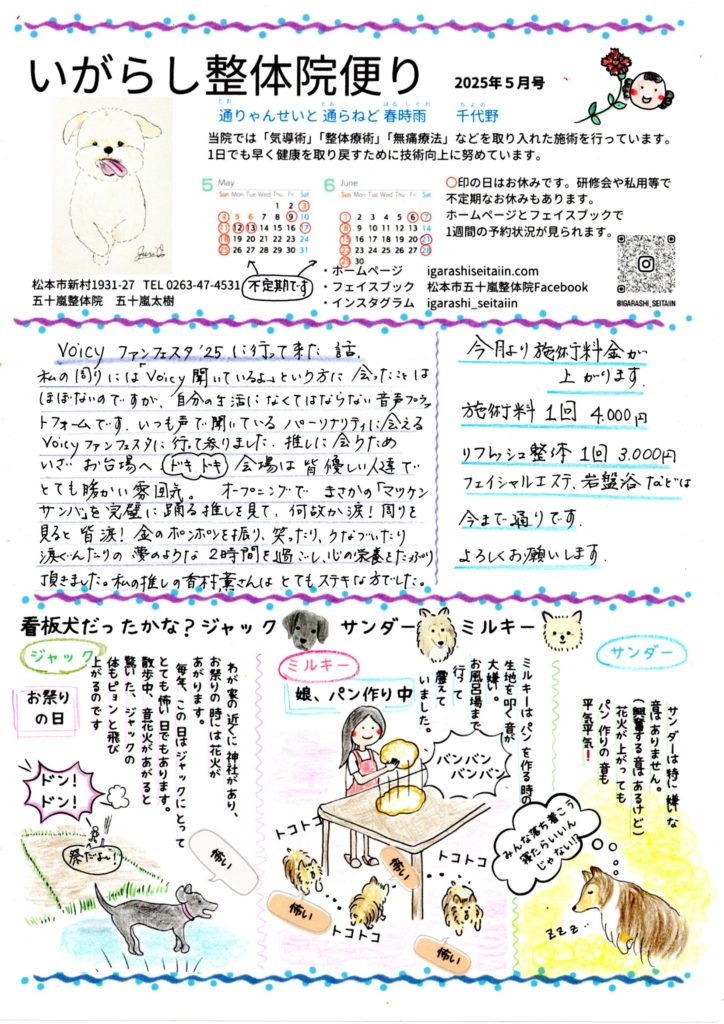 いがらし整体院便り
2025年5月号
とお とお はるしぐれ ちよの
通りゃんせいと 通らねど 春時雨 千代野
当院では「気導術」「整体療術」「無痛療法」などを取り入れた施術を行っています。
1日でも早く健康を取り戻すために技術向上に努めています。
5 May
Sun Mon Tue Wed Thu Fri Sat
1 2 3
4 5 6 7 8 9 10
11 12 13 14 15 16 17
18 19 20 21 22 23 24
25 26 27 28 29 30 31
6 June
Sun Mon Tue Wed Thu Fri Sat
1 2 3 4 5 6 7
8 9 10 11 12 13 14
15 16 17 18 19 20 21
22 23 24 25 26 27 28
29 30
○印の日はお休みです。研修会や私用等で
不定期なお休みもあります。
ホームページとフェイスブックで
1週間の予約状況が見られます。
@IGARASHI_SEITAIIN
松本市新村1931-27 TEL 0263-47-4531
五十嵐整体院 五十嵐太樹
不定期です
・ホームページ igarashiseitaiin.com
・フェイスブック 松本市五十嵐整体院Facebook
・インスタグラム igarashi_seitaiin
Voicy ファンフェスタ'25 に行って来た 話.
私の周りには「Voicy 聞いているよ」という方に 会ったことは
ほぼないのですが、自分の生活になくてはならない音声プラッ
トフォームです。いつも声で聞いている パーソナリティに会える
Voicyファンフェスタに行って参りました。推しに会うため
いざ お台場へ ドキドキ 会場は 皆優しい人達で
とても暖かい雰囲気。 オープニングで まさかの「マツケン
サンバ」を完璧に踊る推しを見て、何故か涙! 周りを
見ると 皆涙! 金のポンポンを振り、笑ったり、うなづいたり
涙ぐんだりの 夢のような 2時間を過ごし、心の栄養をたっぷり
頂きました。私の推しの香村薫さんは とてもステキな方でした。
今月より施術料金が
上がります.
施術料 1回 4.000円
リフレッシュ整体 1回 3.000円
フェイシャルエステ、岩盤浴 などは
今まで通りです.
よろしくお願いします.
看板犬だったかな?ジャック サンダー ミルキー
ジャック
お祭り
の日
わが家の近くに神社があり、
お祭りの時には花火が
あがります。
毎年、この日はジャックにとって
とても怖い日でもあります。
散歩中、音花火があがると
驚いた、ジャックの
体もピョンと飛び
上がるのです
ドン!
ドン!
祭だよ〜!
怖い
ミルキー
娘、パン作り中
ミルキーはパンを作る時の
生地を叩く音が
大嫌い。
お風呂場まで
行って
震えて
いました。
バンバン
バンバン
トコトコ
トコトコ
怖い
怖い
トコトコ
怖い
サンダー
サンダーは特に嫌いな
音はありません。
(興奮する音はあるけど)
花火が上がっても
パン作りの音も
平気平気!
みんな落ち着こう
寝たらいいん
じゃない!?
ZZZ...